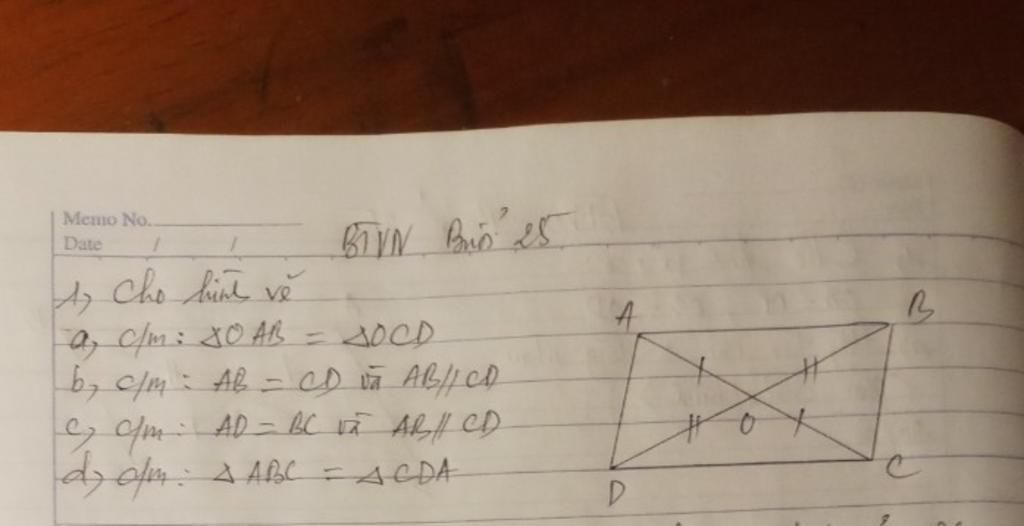 Memo No.
Date / /
BTVN Buổi 25
1, Cho hình vẽ
a, c/m : ΔOAB = ΔOCD
b, c/m : AB = CD và AB // CD
c, c/m : AD = BC và AB // CD
d, c/m : ΔABC = ΔCDA
A B
O
D C